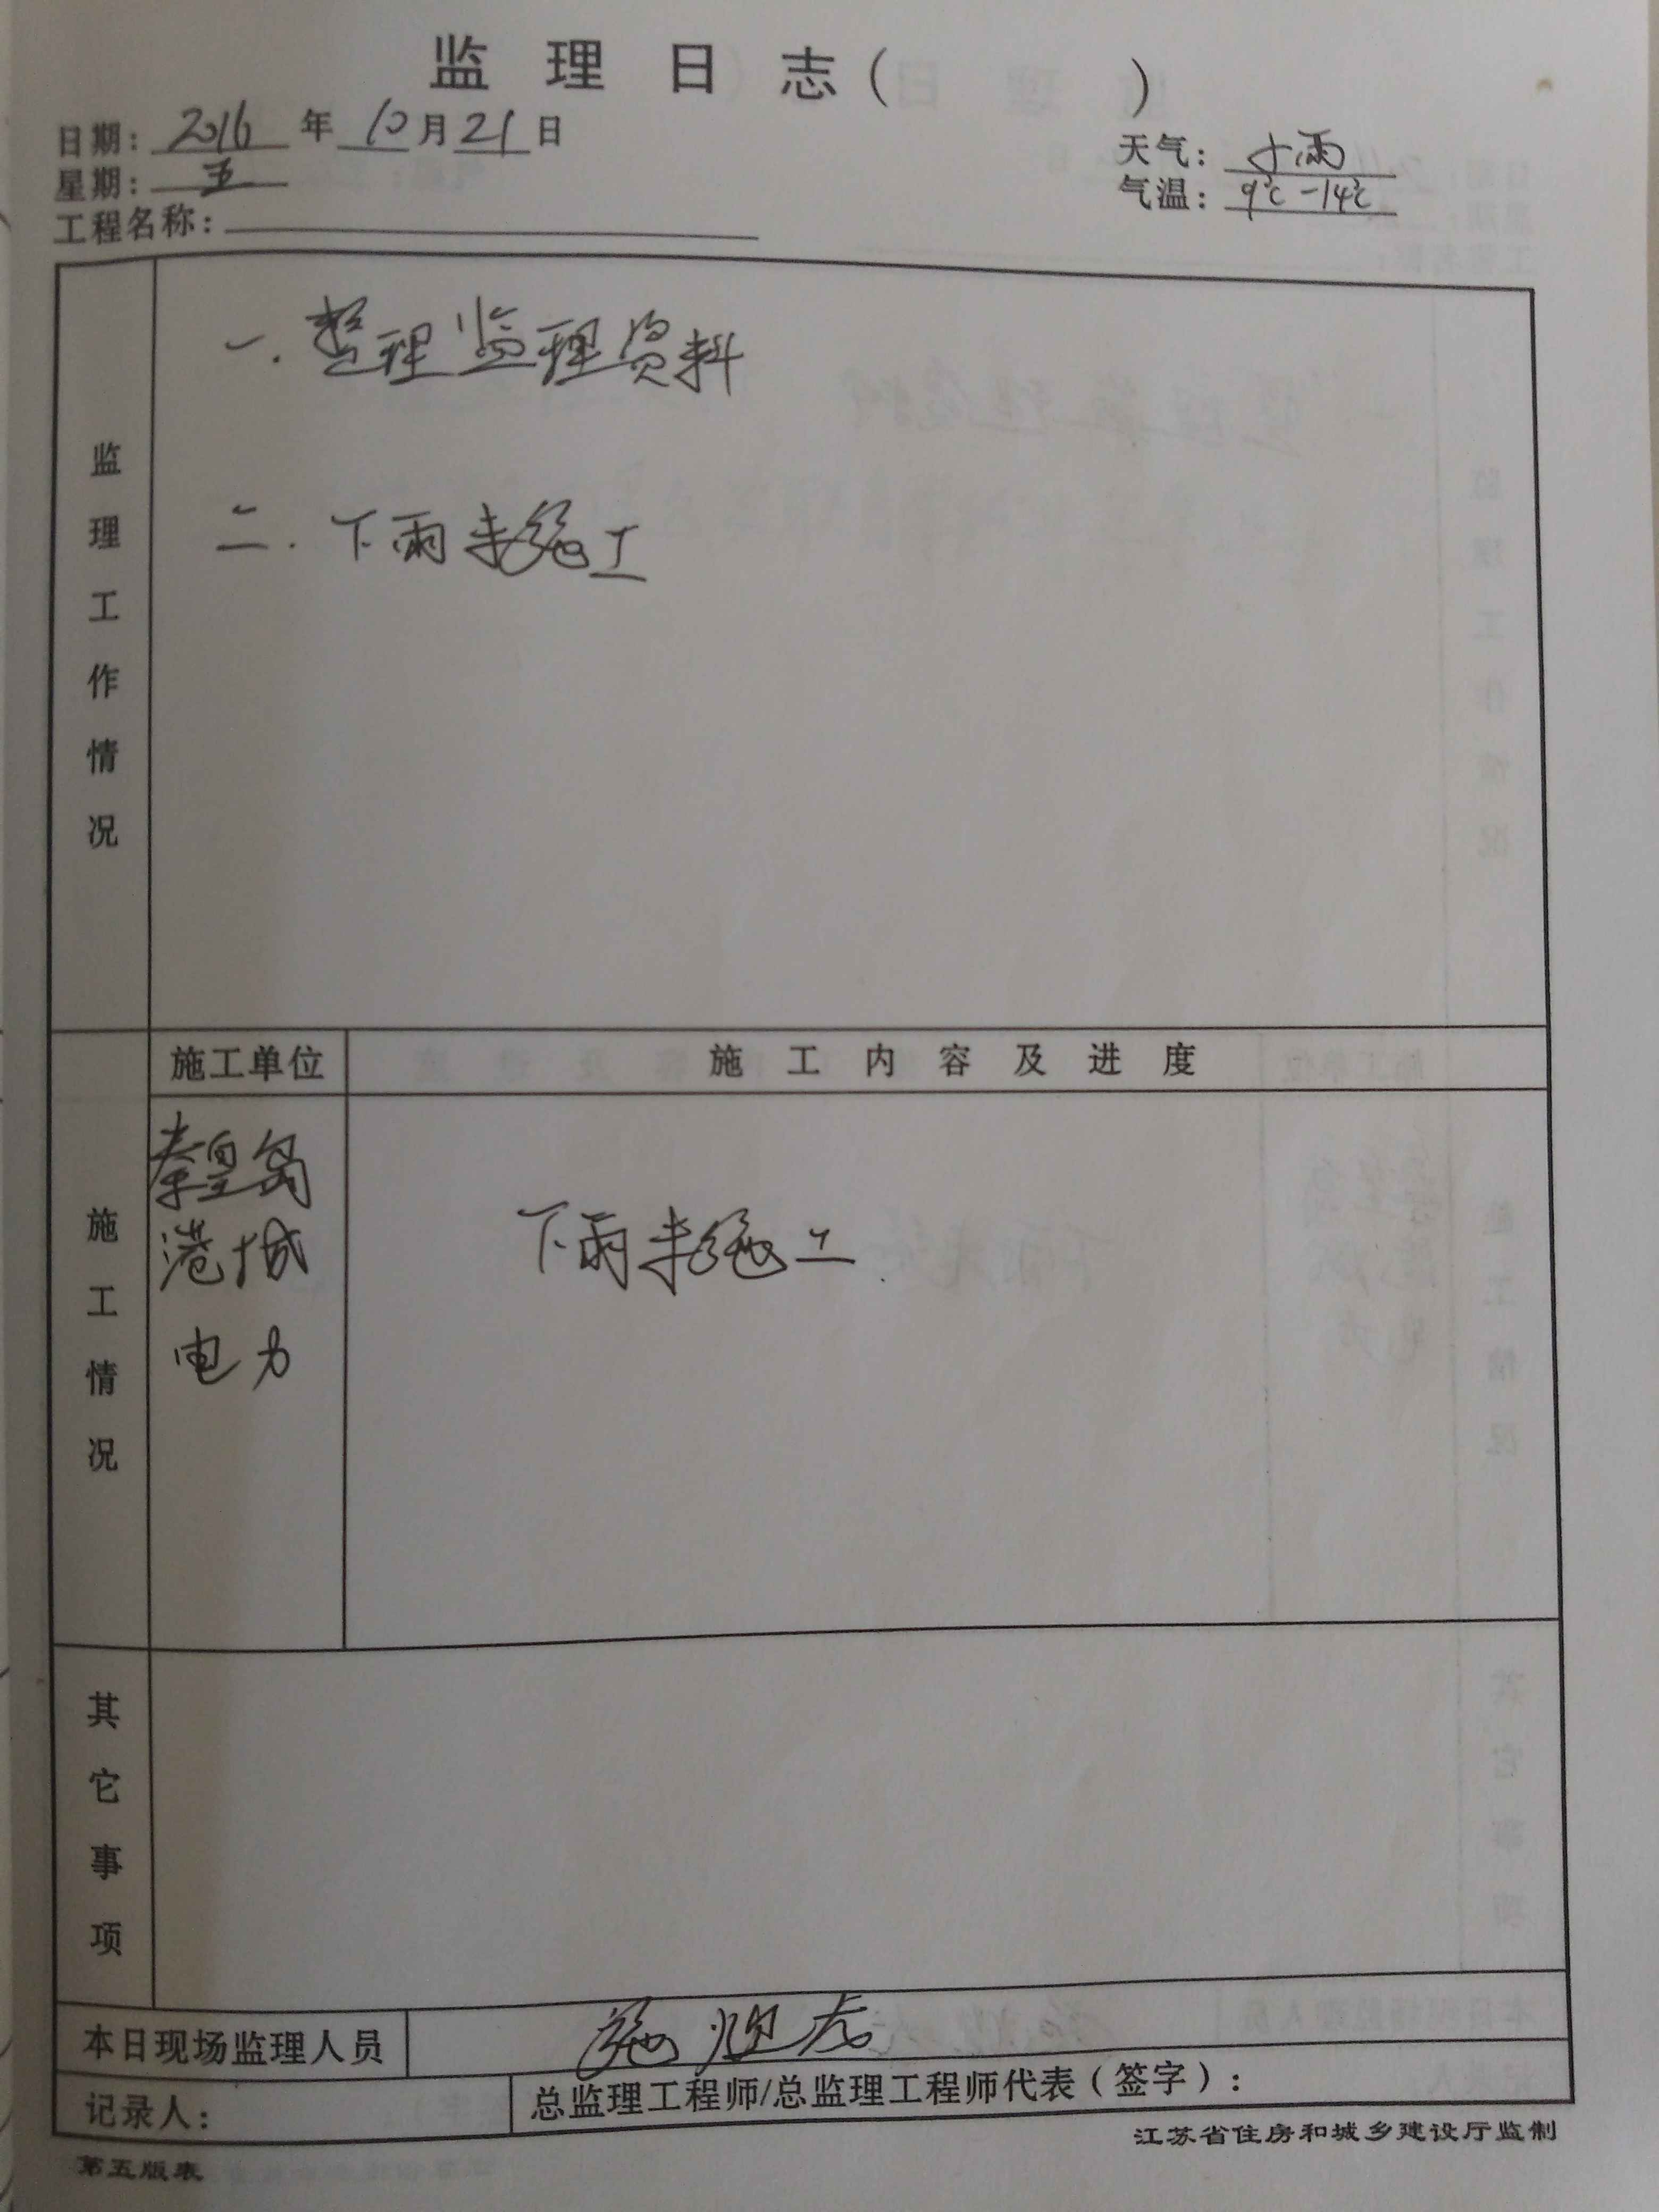 监理日志(          )
日期: 2016 年 10 月 21 日
天气: 小雨
星期: 五
气温: 9℃-14℃
工程名称:
监理工作情况
一.整理监理资料
二.下雨未施工
施工情况
施工单位
施工内容及进度
秦皇岛
港城
电力
下雨未施工.
其它事项
本日现场监理人员
施
记录人:
总监理工程师/总监理工程师代表(签字):
江苏省住房和城乡建设厅监制
第五版表